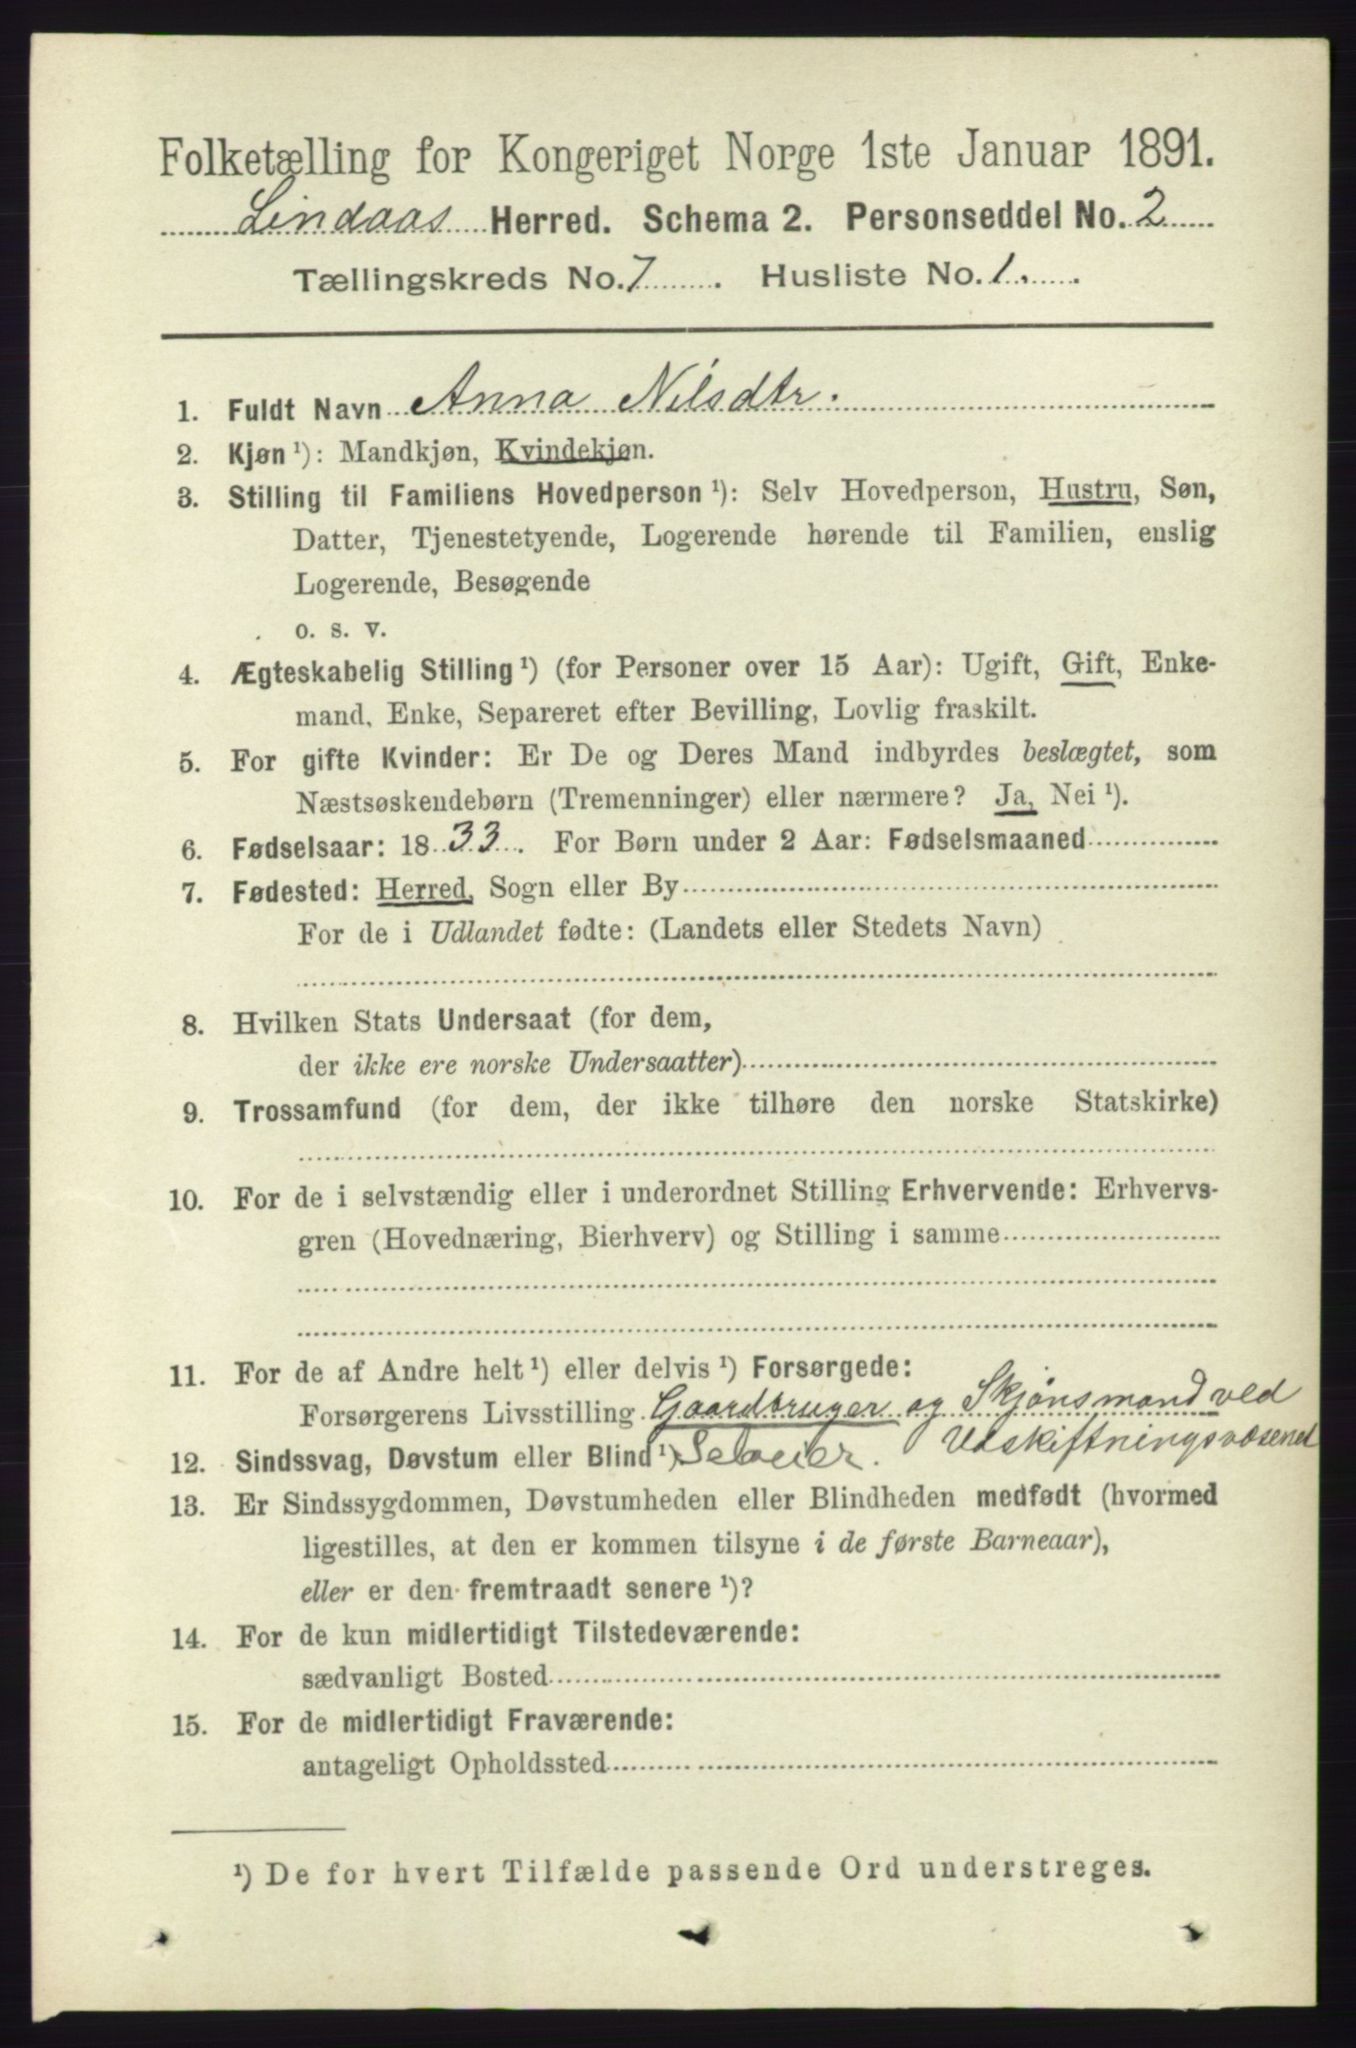 Folketælling for Kongeriget Norge 1ste Januar 1891.
Lindaas Herred. Schema 2. Personseddel No. 2
Tællingskreds No. 7. Husliste No. 1.
1. Fuldt Navn Anna Nilsdtr.
2. Kjøn ¹): Mandkjøn, Kvindekjøn.
3. Stilling til Familiens Hovedperson ¹): Selv Hovedperson, Hustru, Søn,
Datter, Tjenestetyende, Logerende hørende til Familien, enslig
Logerende, Besøgende
o. s. v.
4. Ægteskabelig Stilling ¹) (for Personer over 15 Aar): Ugift, Gift, Enke-
mand, Enke, Separeret efter Bevilling, Lovlig fraskilt.
5. For gifte Kvinder: Er De og Deres Mand indbyrdes beslægtet, som
Næstsøskendebørn (Tremenninger) eller nærmere? Ja, Nei ¹).
6. Fødselsaar: 1833. For Børn under 2 Aar: Fødselsmaaned
7. Fødested: Herred, Sogn eller By
For de i Udlandet fødte: (Landets eller Stedets Navn)
8. Hvilken Stats Undersaat (for dem,
der ikke ere norske Undersaatter)
9. Trossamfund (for dem, der ikke tilhøre den norske Statskirke)
10. For de i selvstændig eller i underordnet Stilling Erhvervende: Erhvervs-
gren (Hovednæring, Bierhverv) og Stilling i samme
11. For de af Andre helt ¹) eller delvis ¹) Forsørgede:
Forsørgerens Livsstilling Gaardbruger og Skjønsmand ved
12. Sindssvag, Døvstum eller Blind ¹) Selveier. Udskiftningsvæsenet
13. Er Sindssygdommen, Døvstumheden eller Blindheden medfødt (hvormed
ligestilles, at den er kommen tilsyne i de første Barneaar),
eller er den fremtraadt senere ¹)?
14. For de kun midlertidigt Tilstedeværende:
sædvanligt Bosted
15. For de midlertidigt Fraværende:
antageligt Opholdssted
¹) De for hvert Tilfælde passende Ord understreges.